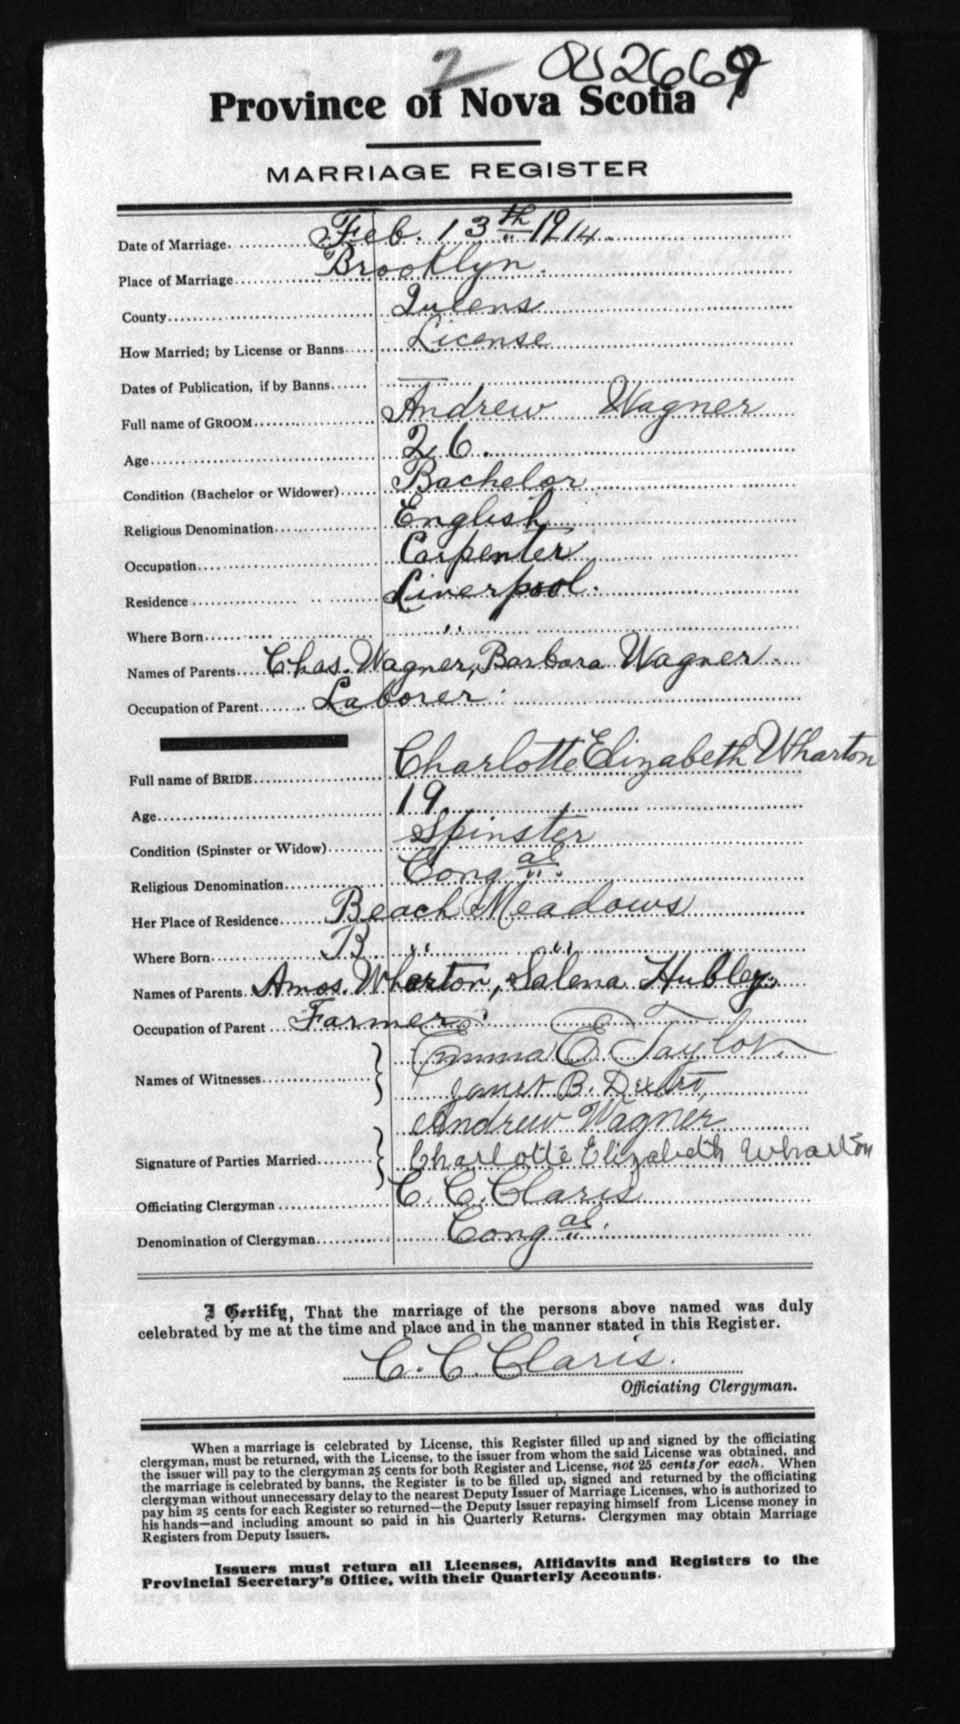 2 2669
Province of Nova Scotia
MARRIAGE REGISTER
Date of Marriage. Feb. 13th 1914.
Place of Marriage Brooklyn.
County Queens
How Married; by License or Banns License
Dates of Publication, if by Banns —
Full name of GROOM Andrew Wagner
Age 26.
Condition (Bachelor or Widower) Bachelor
Religious Denomination English
Occupation Carpenter
Residence Liverpool.
Where Born "
Names of Parents Chas. Wagner, Barbara Wagner.
Occupation of Parent Laborer.
Full name of BRIDE Charlotte Elizabeth Wharton
Age 19.
Condition (Spinster or Widow) Spinster
Religious Denomination Congal.
Her Place of Residence Beach Meadows
Where Born B " "
Names of Parents. Amos. Wharton, Salena Hubley.
Occupation of Parent Farmer.
Emma E. Taylor
Names of Witnesses Janet B.
Andrew Wagner
Signature of Parties Married Charlotte Elizabeth Wharton
Officiating Clergyman C. C. Claris
Denomination of Clergyman Congal.
I Certify, That the marriage of the persons above named was duly
celebrated by me at the time and place and in the manner stated in this Register.
C. C. Claris.
Officiating Clergyman.
When a marriage is celebrated by License, this Register filled up and signed by the officiating
clergyman, must be returned, with the License, to the issuer from whom the said License was obtained, and
the issuer will pay to the clergyman 25 cents for both Register and License, not 25 cents for each. When
the marriage is celebrated by banns, the Register is to be filled up, signed and returned by the officiating
clergyman without unnecessary delay to the nearest Deputy Issuer of Marriage Licenses, who is authorized to
pay him 25 cents for each Register so returned—the Deputy Issuer repaying himself from License money in
his hands—and including amount so paid in his Quarterly Returns. Clergymen may obtain Marriage
Registers from Deputy Issuers.
Issuers must return all Licenses, Affidavits and Registers to the
Provincial Secretary's Office, with their Quarterly Accounts.